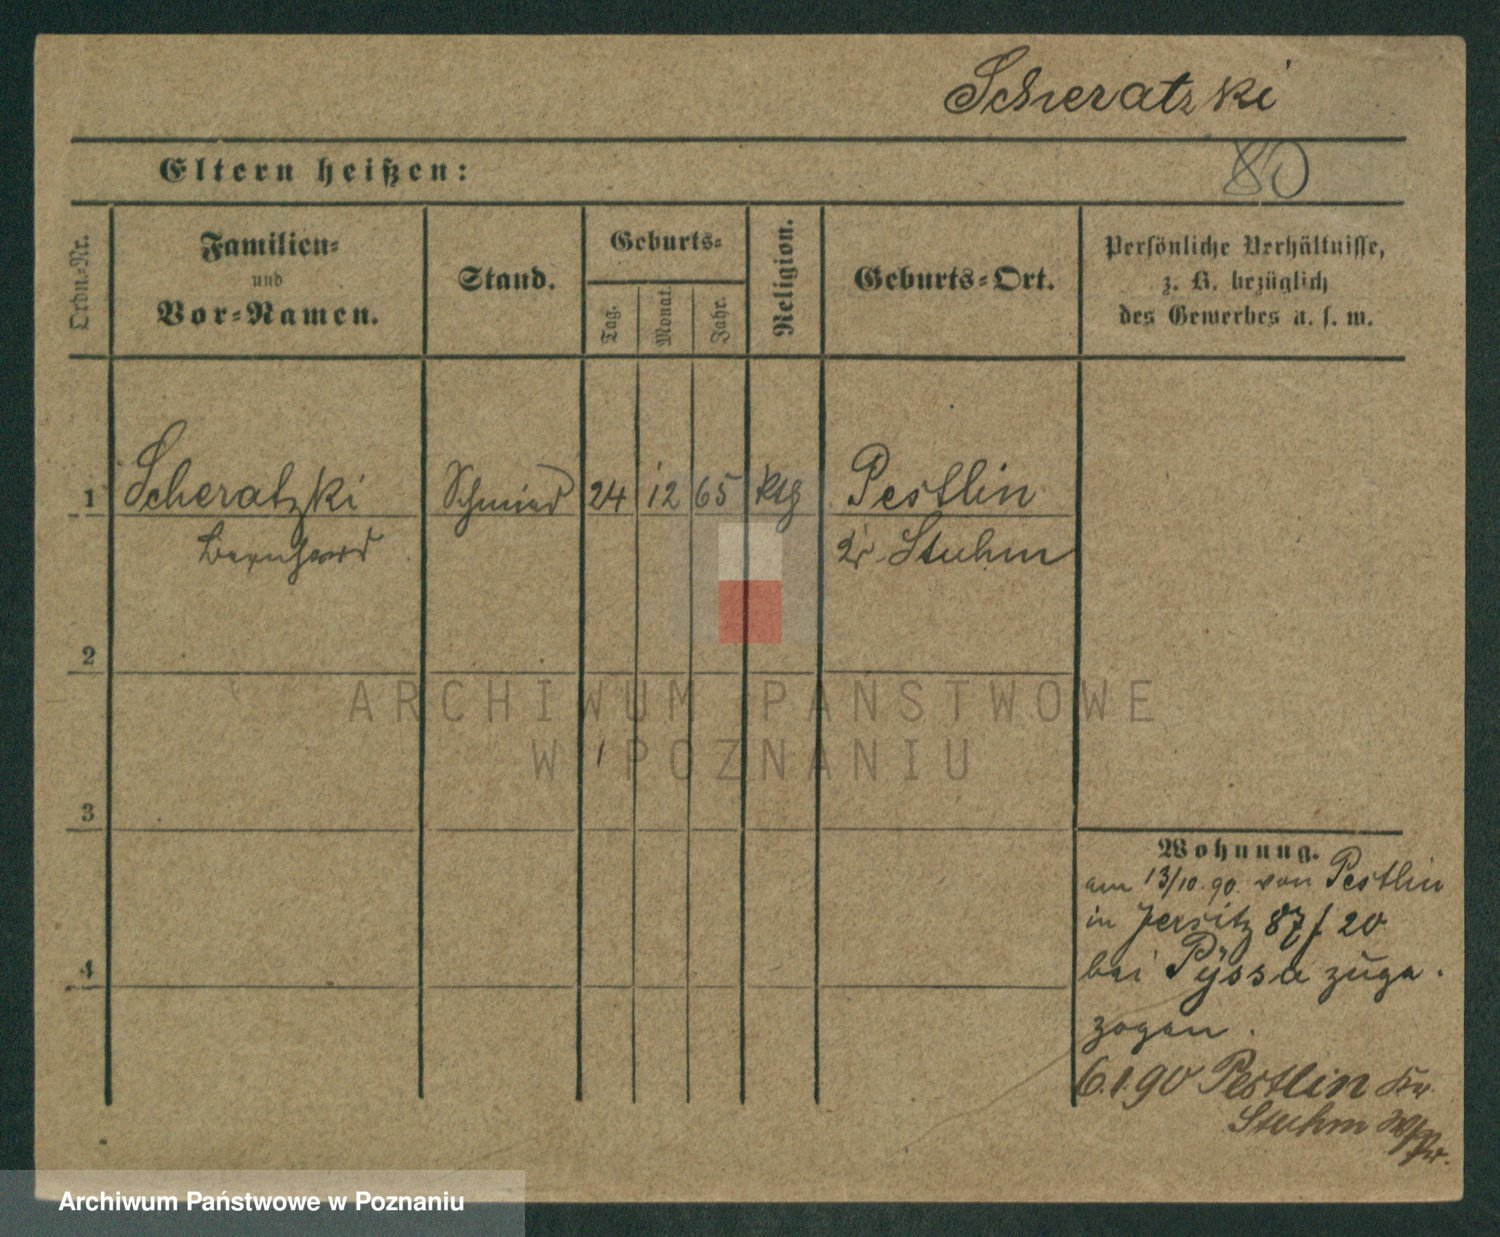 Scheratzki
Eltern heißen:
80
Ordn-Nr.
Familien-
und
Vor-Namen.
Stand.
Geburts-
Tag.
Monat.
Jahr.
Religion.
Geburts-Ort.
Persönliche Verhältnisse,
z. B. bezüglich
des Gewerbes u. s. w.
1 Scheratzki Schmied 24 12 65 kth Pestlin
Bernhard Kr. Stuhm
2
3
4
Wohnung.
am 13/10.90. von Pestlin
in Jersitz 87 f 20
bei Pyssa zuge
zogen.
6.1.90 Pestlin Kr.
Stuhm W/Pr.
ARCHIWUM PAŃSTWOWE
W POZNANIU
Archiwum Państwowe w Poznaniu